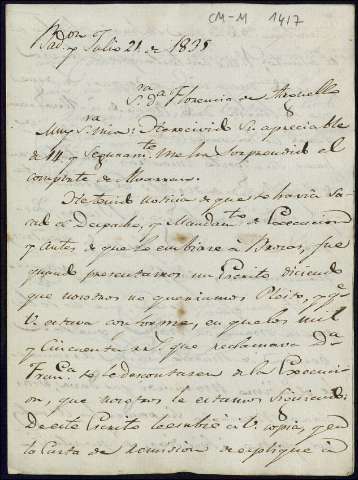 CM-M 1417
Bad.z y Julio 21 de 1835
S.ra D.a Florencia de
Muy S.ra mia: He recivido Su apreciable
de 14 y Seguram.te me ha Sorprendido el
Contexto de
He tenido noticia de que se havia
el Despacho, y Mandam.to de Execucion
y Antes de que lo embiase a Brozas, fue
quando presentamos un Escrito diciendo
que nosotros no queriamos Pleito, y q.e
V. estava conforme, en que los mil
y Cincuenta r.s que reclamava D.a
Fran.ca se le descontasen de la Execuci-
on, que nosotros le estamos Siguiendo:
De este Escrito le embié á V. copia, y en
la Carta de remision de expliqué á